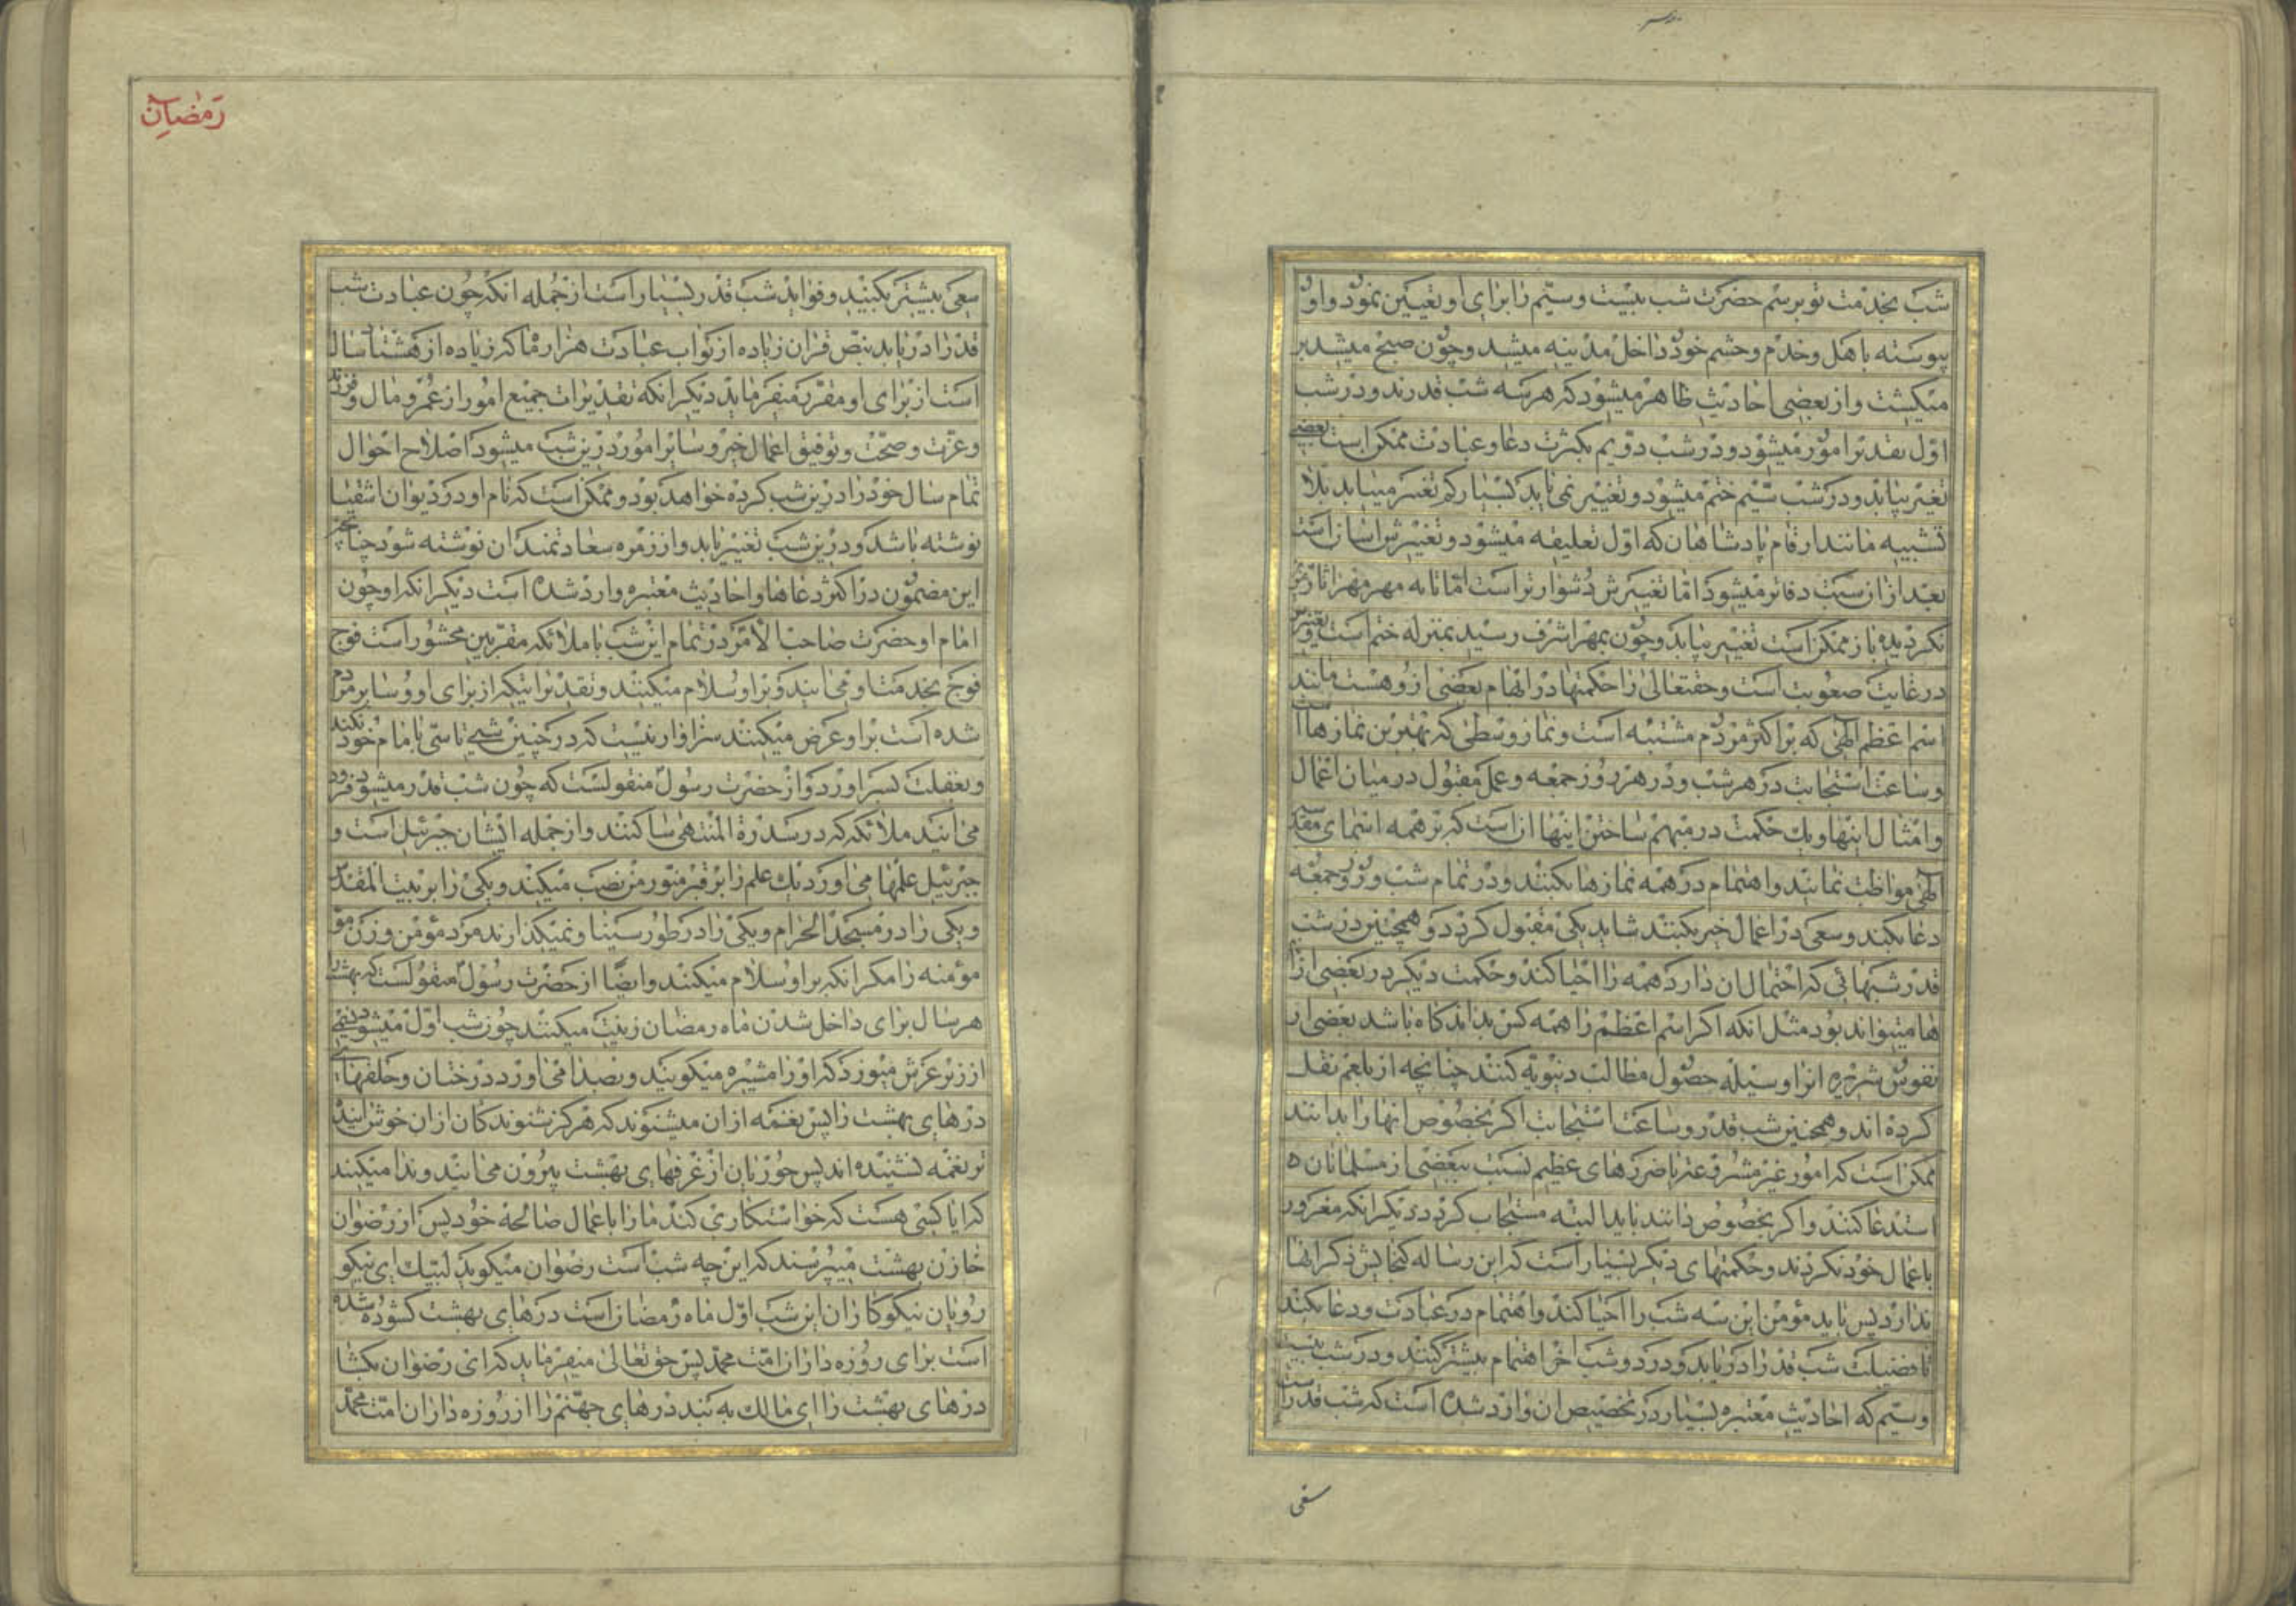 شب بخدمت تو برسم حضرت شب بیست و سیم را برای او تعیین نمود و او
پیوسته با هل و خدم و حشم خود داخل مدینه میشد و چون صبح میشد بر
میکشت و از بعضی احادیث ظاهر میشود که هر سه شب قدرند و در شب
اول تقدیر امور میشود و در شب دویم بکثرت دعا و عبادت ممکن است بعضی
تغییر بیابد و در شب سیم ختم میشود و تغییر نمی یابد بسیار کم تغییر میبابد بلا
تشبیه مانند ارقام پادشاهان که اول تعلیقه میشود و تغییرش اسان است
بعد از ان ثبت دفاتر میشود اما تغییرش دشوارتر است اما تا به مهر مهر اثار
نکردیده باز ممکن است تغییر بیابد و چون بمهر اشرف رسید بمنزله ختم است و تغییرش
در غایت صعوبت است و حقتعالی را حکمتها در ابهام بعضی از و هست مانند
اسم اعظم الهی که بر اکثر مردم مشتبه است و نماز وسطی که بهترین نمازها است
و ساعت استجابت در هر شب و در هر روز جمعه و عمل مقبول در میان اعمال
و امثال اینها و یک حکمت در مبهم ساختن اینها ان است که بر همه اسمای مقدسه
الهی مواظبت نمایند و اهتمام در همه نمازها بکنند و در تمام شب و روز جمعه
دعا بکند و سعی در اعمال خیر بکنند شاید یکی مقبول کردد و همچنین در شب
قدر شبهائی که احتمال ان دارد همه را احیا کند و حکمت دیکر در بعضی از
ها میتواند بود مثل انکه اکر اسم اعظم را همه کس بداند کاه باشد بعضی از
نفوس شریره انرا وسیله حصول مطالب دنیویه کنند چنانچه از بلعم نقل
کرده اند و همچنین شب قدر و ساعت استجابت اکر بخصوص انها را بدانند
ممکن است که امور غیر مشروعه یا ضررهای عظیم نسبت ببعضی از مسلمانان
استدعا کنند و اکر بخصوص دانند باید البته مستجاب کردد دیکر انکه مغرور
باعمال خود نکردند و حکمتهای دیکر بسیار است که این رساله کنجایش ذکر انها
ندارد پس باید مؤمن این سه شب را احیا کند و اهتمام در عبادت و دعا بکند
تا فضیلت شب قدر را دریابد و در دو شب اخر اهتمام بیشتر کنند و در شب بیست
و سیم که احادیث معتبره بسیار در تخصیص ان وارد شده است که شب قدر است
سعی
رمضان
سعی بیشتر بکنید و فواید شب قدر بسیار است از جمله انکه چون عبادت شب
قدر را دریابد بنص قران زیاده از ثواب عبادت هزار ماه که زیاده از هشتاد سال
است از برای او مقرر میفرماید دیکر انکه تقدیرات جمیع امور از عمر و مال و فرزند
و عزت و صحت و توفیق اعمال خیر و سایر امور در این شب میشود اصلاح احوال
تمام سال خود را در این شب کرده خواهد بود و ممکن است که نام او در دیوان اشقیا
نوشته باشد و در این شب تغییر یابد و از زمره سعادتمندان نوشته شود چنانچه
این مضمون در اکثر دعاها و احادیث معتبره وارد شده است دیکر انکه او چون
امام او حضرت صاحب الامر در تمام این شب با ملائکه مقربین محشور است فوج
فوج بخدمت او می ایند و بر او سلام میکنند و تقدیراتیکه از برای او و سایر مردم
شده است بر او عرض میکنند سزاوار نیست که در چنین شبی تاسی بامام خود نکند
و بغفلت بسر اورد و از حضرت رسول منقولست که چون شب قدر میشود فرود
می ایند ملائکه که در سدرة المنتهی ساکنند و از جمله ایشان جبرئیل است و
جبرئیل علمها می اورد یک علم را بر قبر منور من نصب میکند و یکی را بر بیت المقدس
و یکی را در مسجد الحرام و یکی را در طور سینا و نمیکذارند مرد مؤمن و زن
مؤمنه را مکر انکه بر او سلام میکنند و ایضا از حضرت رسول منقولست که بهشت را
هر سال برای داخل شدن ماه رمضان زینت میکنند چون شب اول میشود نسیمی
از زیر عرش میوزد که او را مشیره میکویند و بصدا می اورد درختان و حلقهای
درهای بهشت را پس نغمه از ان میشنوند که هرکز شنوندکان از ان خوش ایند
تر نغمه نشنیده اند پس حوریان از غرفهای بهشت بیرون می ایند و ندا میکنند
که ایا کسی هست که خواستکاری کند ما را با اعمال صالحه خود پس از رضوان
خازن بهشت میپرسند که این چه شب است رضوان میکوید لبیک ای نیکو
رویان نیکوکاران این شب اول ماه رمضان است درهای بهشت کشوده شده
است برای روزه داران امت محمد پس حق تعالی میفرماید که ای رضوان بکشا
درهای بهشت را ای مالک به بند درهای جهنم را از روزه داران امت محمد